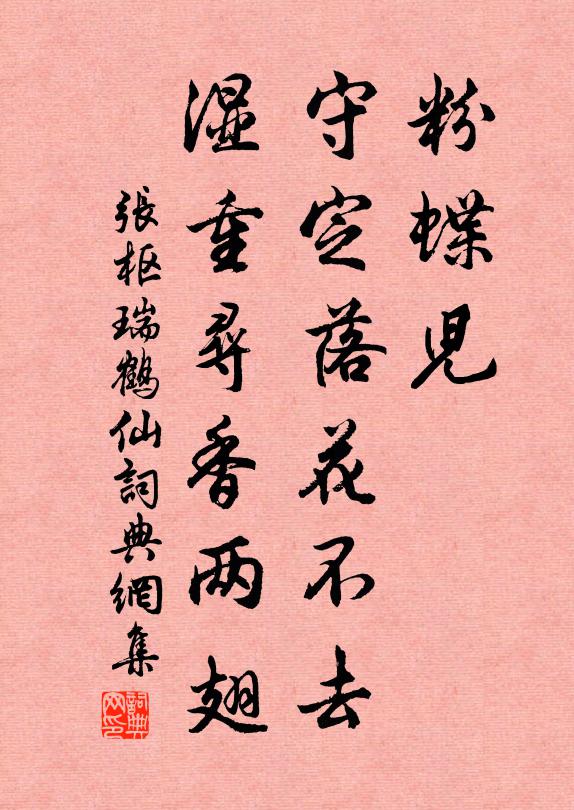 粉蝶児
守定落花不去
湿重尋香两翅
張枢瑞鶴仙詞典網集
詞典网印